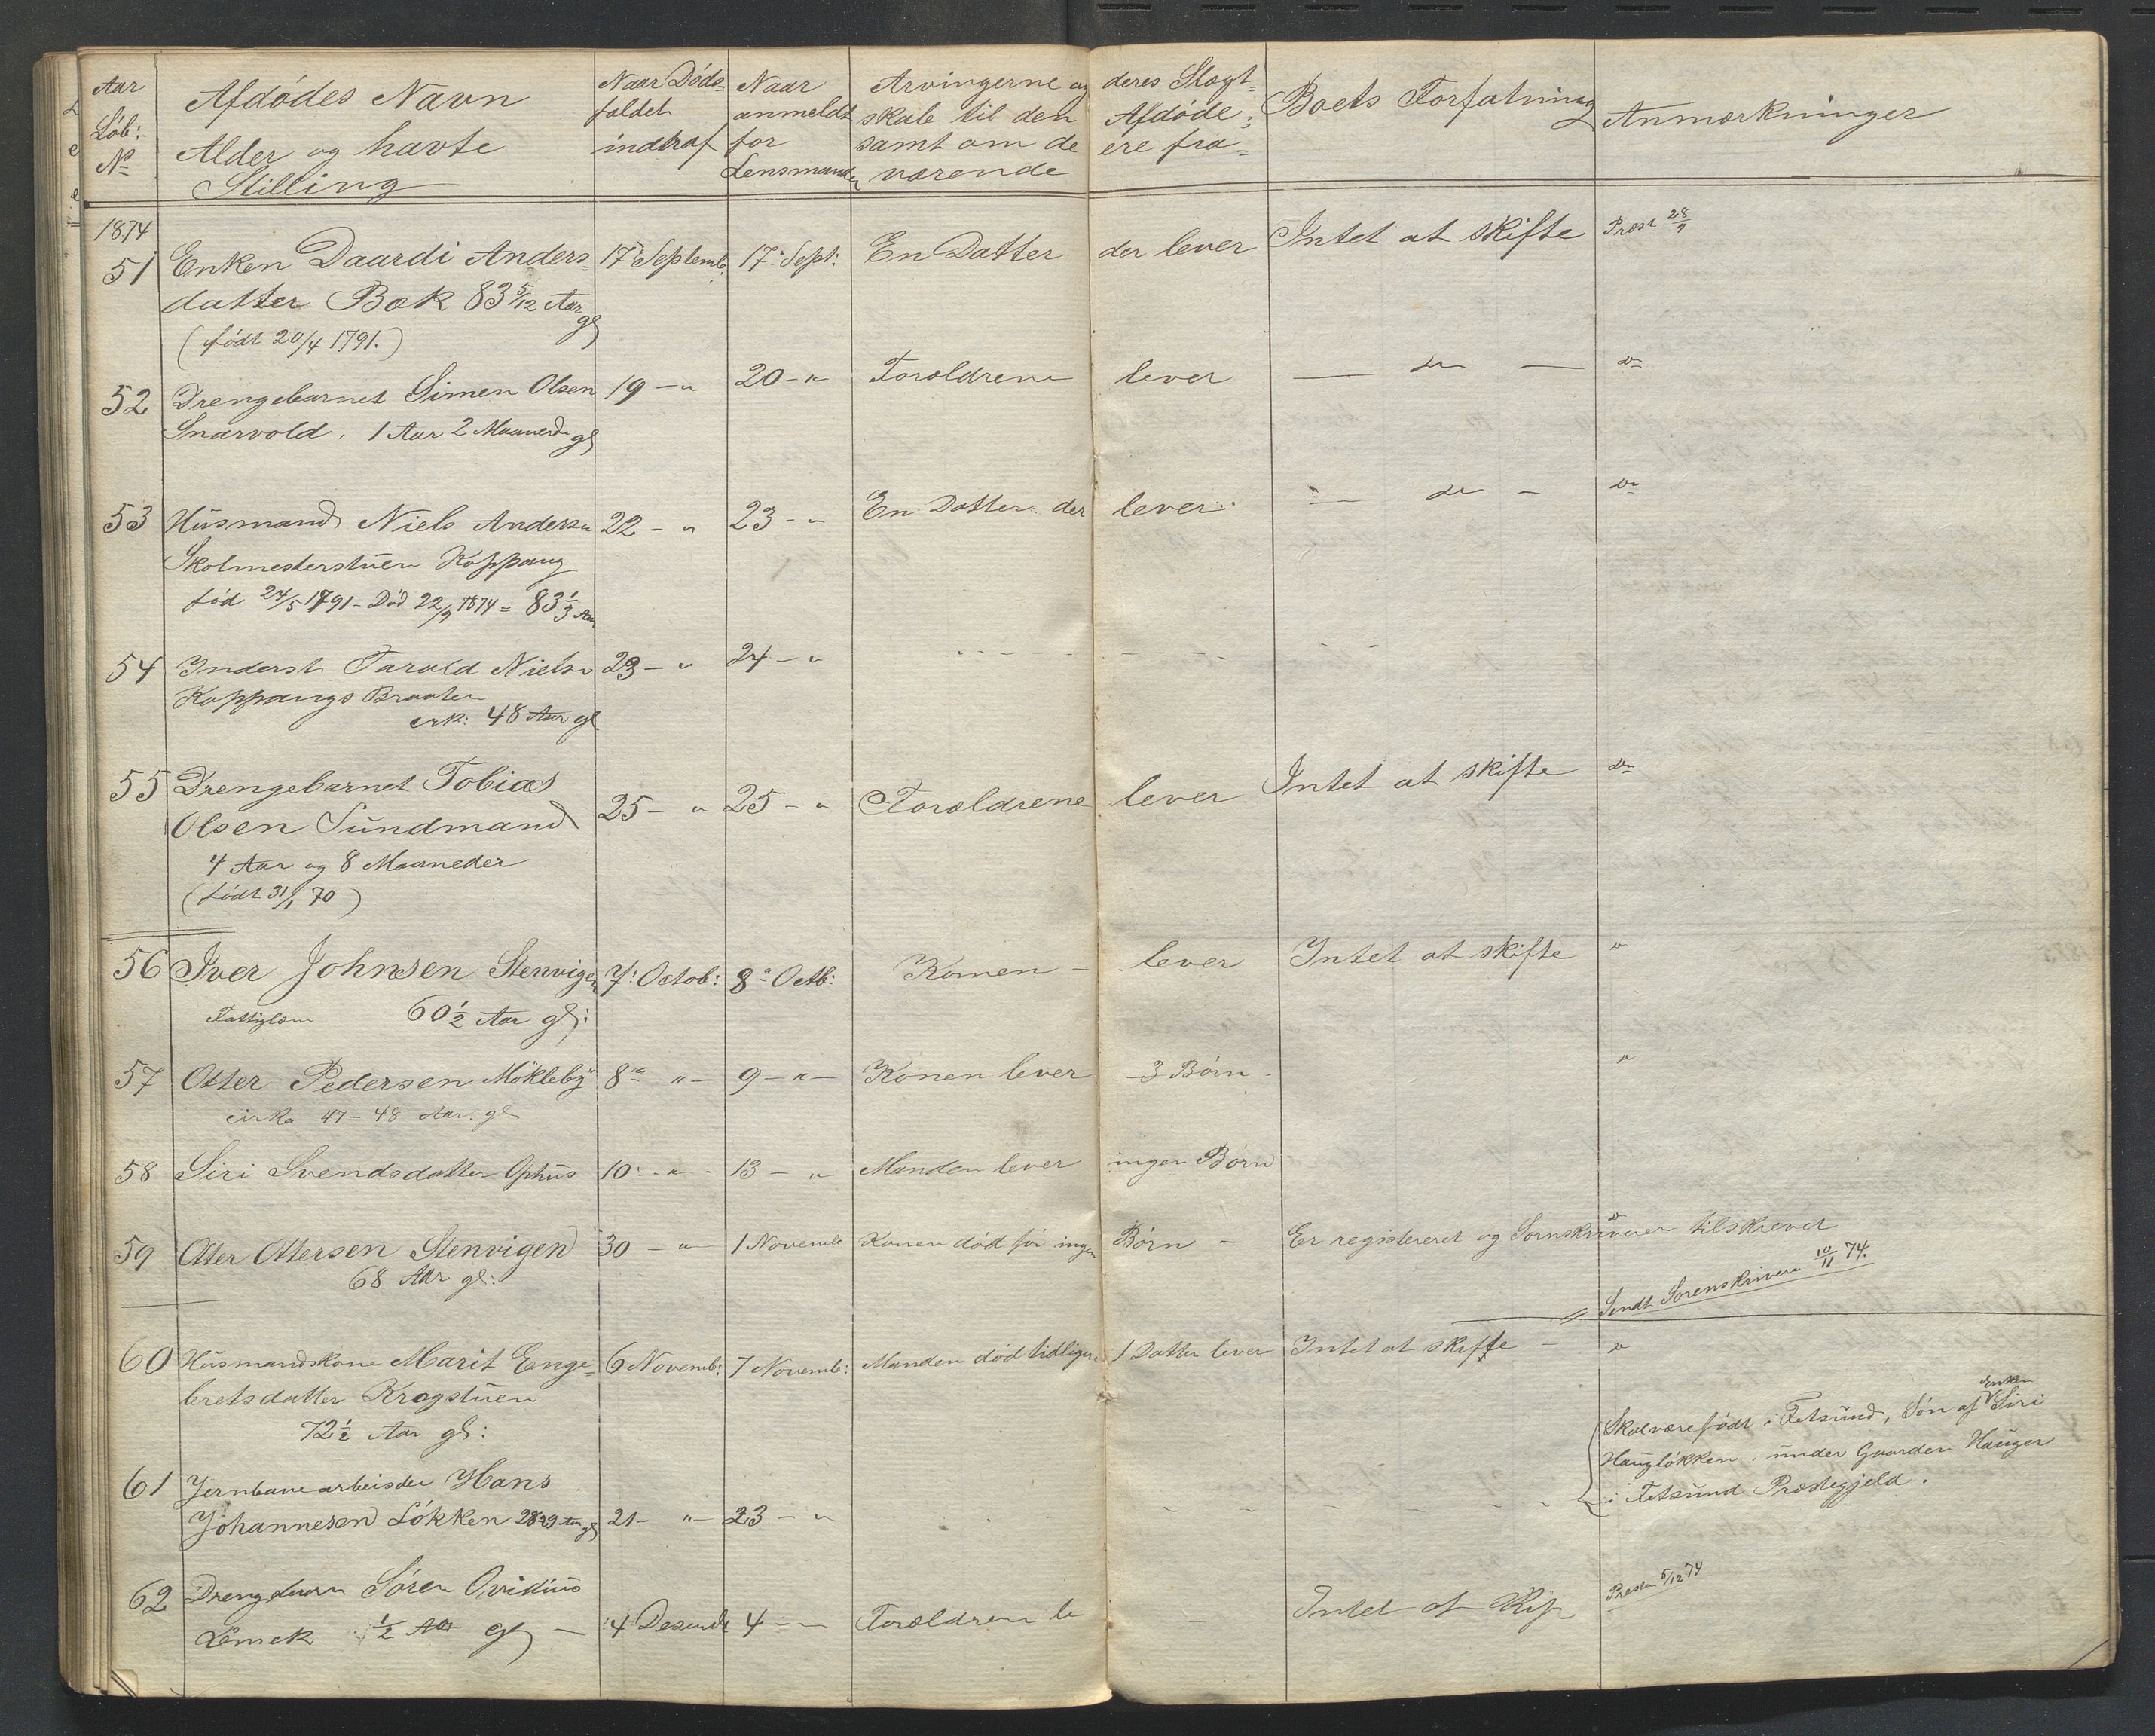 Aar Löb: No
Afdödes Navn Alder og havte Stilling
Naar Döds=faldet indtraf
Naar anmeldt for Lensmanden
Arvingerne og deres Slægt=
skab til den Afdöde;
samt om de ere fra=
værende
Boets Forfatning
Anmærkninger
1874
51 Enken Daardi Anders= 17: Septemb: 17: Sept: En Datter der lever Intet at skifte Præst 28/9
datter Bæk 83 5/12 Aar gl
(födt 20/4 1791.)
52 Drengebarnet Simen Olsen 19 – " 20 – " Foræeldrene lever — do — do
Snarvold. 1 Aar 2 Maaneder gl
53 Husmand Niels Andersen 22 – " 23 – " En Datter der lever. — do – do
Skolmesterstuen Koppang
föd 24/5 1791 – Död 22/9 1874 = 83 1/3 Aar
54 Inderst Tarald Nielsen 23 – " 24 – "
Koppangs Braaten
cirk: 48 Aar gl
55 Drengebarnet Tobias 25 – " 25 – " Forældrene lever Intet at skifte do
Olsen Sundmand
4 Aar og 8 Maaneder
(födt 31/1 70)
56 Iver Johnsen Stenvigen 7: Octob: 8 Octb: Konen – lever Intet at skifte "
Fattiglem 60 1/2 Aar gl:
57 Otter Pedersen Mökleby 8 " – 9 – " – Konen lever – 3 Börn – "
cirka 47 – 48 Aar gl
58 Siri Svendsdatter Ophus 10: – " – 13 – " Manden lever ingen Börn
59 Otter Ottersen Stenvigen 30 – " 1 Novemb Konen död för ingen Börn – Er registreret og Sornskriveren tilskrevet
68 Aar gl:
= Sendt Sorenskriveren 10/11 74.
60 Husmandskone Marit Enge= 6 Novemb: 7 Novemb: Manden död tidligere 1 Datter lever Intet at skifte – "
bretsdatter Krogstuen
72 1/2 Aar gl:
61 Jernbanearbeider Hans
Johannesen Lökken 28–29 Aar gl 21 – " – 23 – "
Skal være födt i Fetsund, Sön af Enken Siri
Hauglökken under Gaarden Hauger
i Fetsund Præstegjeld.
62 Drengebarn Sören Ovidius
1/2 Aar gl – 4 Desemb 4 – – Forældrene le – Intet at skift Præsten 5/12 74